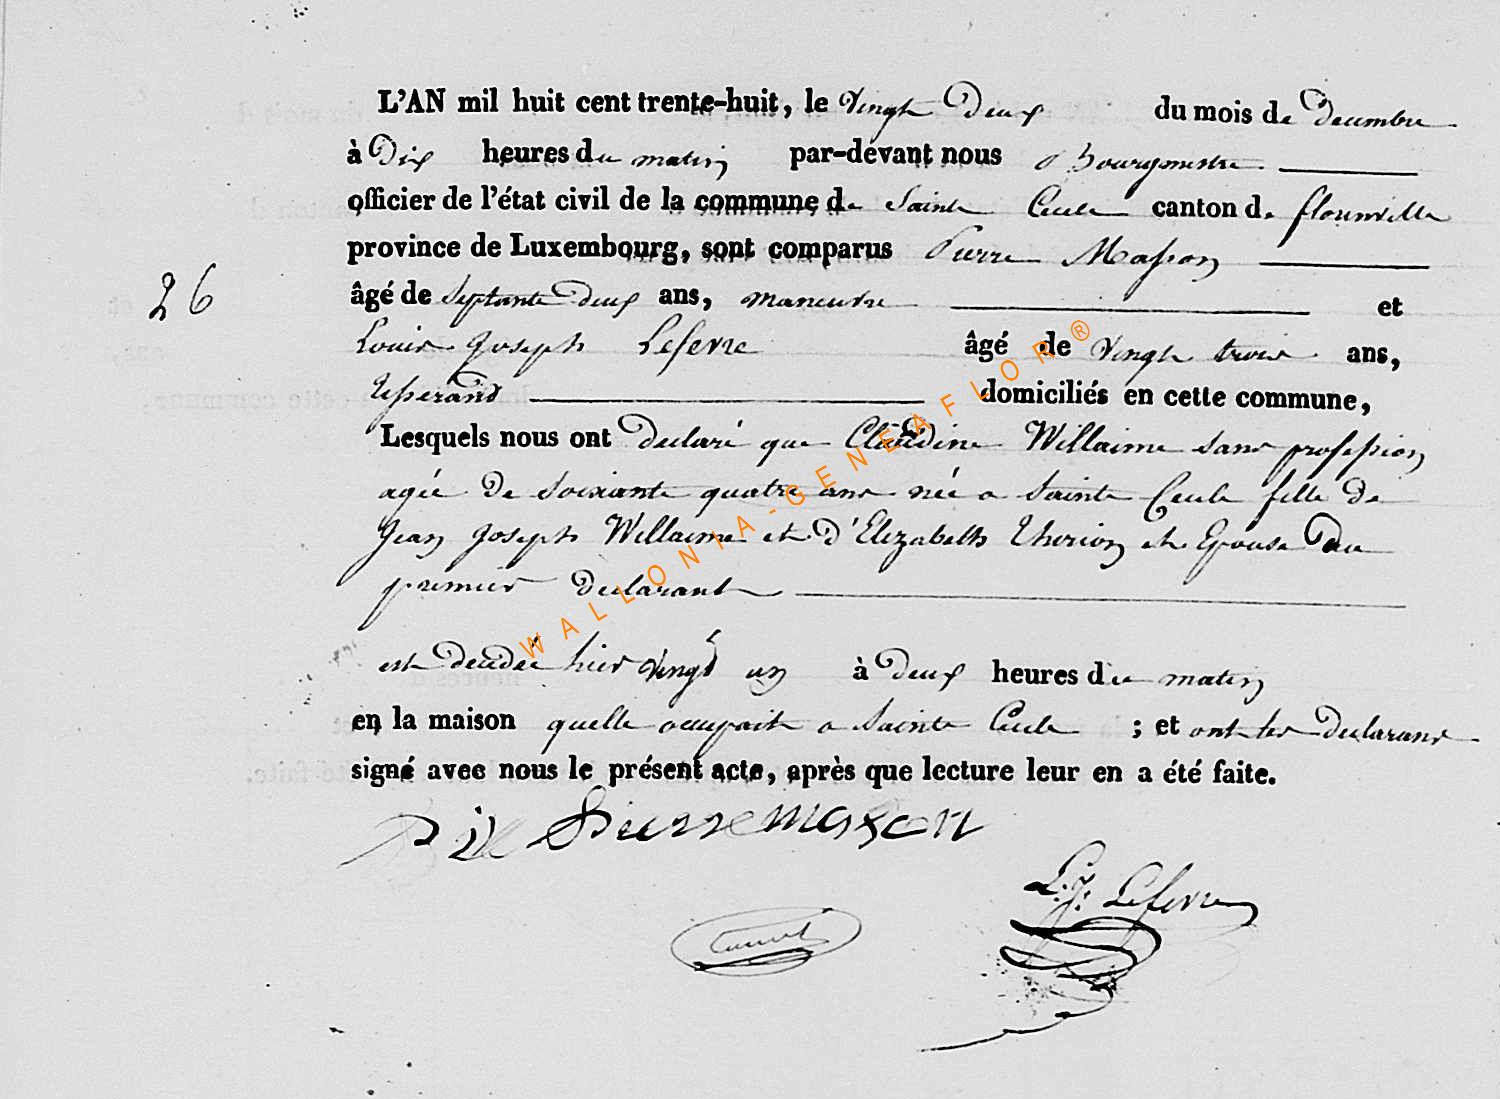 L'AN mil huit cent trente-huit, le vingt deux du mois de decembre
à dix heures du matin par-devant nous Bourgmestre
officier de l'état civil de la commune de Sainte Cecile canton de florenville
province de Luxembourg, sont comparus Pierre Masson
26
âgé de septante deux ans, maneuvre et
Louis Joseph Lefevre âgé de vingt trois ans,
Tisserand domiciliés en cette commune,
Lesquels nous ont declaré que Claudine Willaime sans profession
agée de soixante quatre ans née a Sainte Cecile fille de
Jean Joseph Willaime et d'Elizabeth Thirion et Epouse du
premier declarant
est decedée hier vingt un à deux heures du matin
en la maison quelle occupait a Sainte Cecile ; et ont les declarans
signé avec nous le présent acte, après que lecture leur en a été faite.
Pierre masson
L. J. Lefevre
WALLONIA-GENEAFLOR®